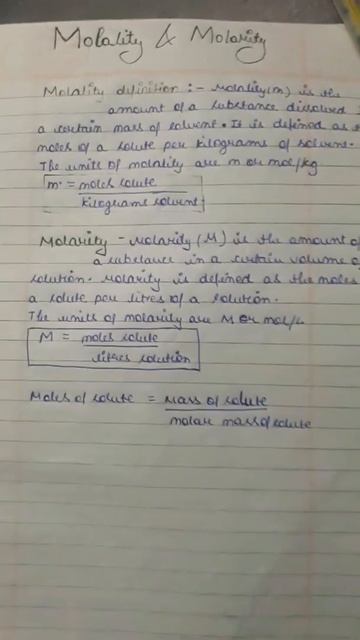 Molality & Molarity
Molality definition :- Molality(m) is the
amount of a substance dissolved
a certain mass of solvent. It is defined as
moles of a solute per kilograms of solvent.
The units of molality are m or mol/kg
m = moles solute
kilograms solvent
Molarity - Molarity (M) is the amount of
a substance in a certain volume of
solution. Molarity is defined as the moles
a solute per litres of a solution.
The units of molarity are M or mol/L
M = moles solute
litres solution
Moles of solute = Mass of solute
molar mass of solute